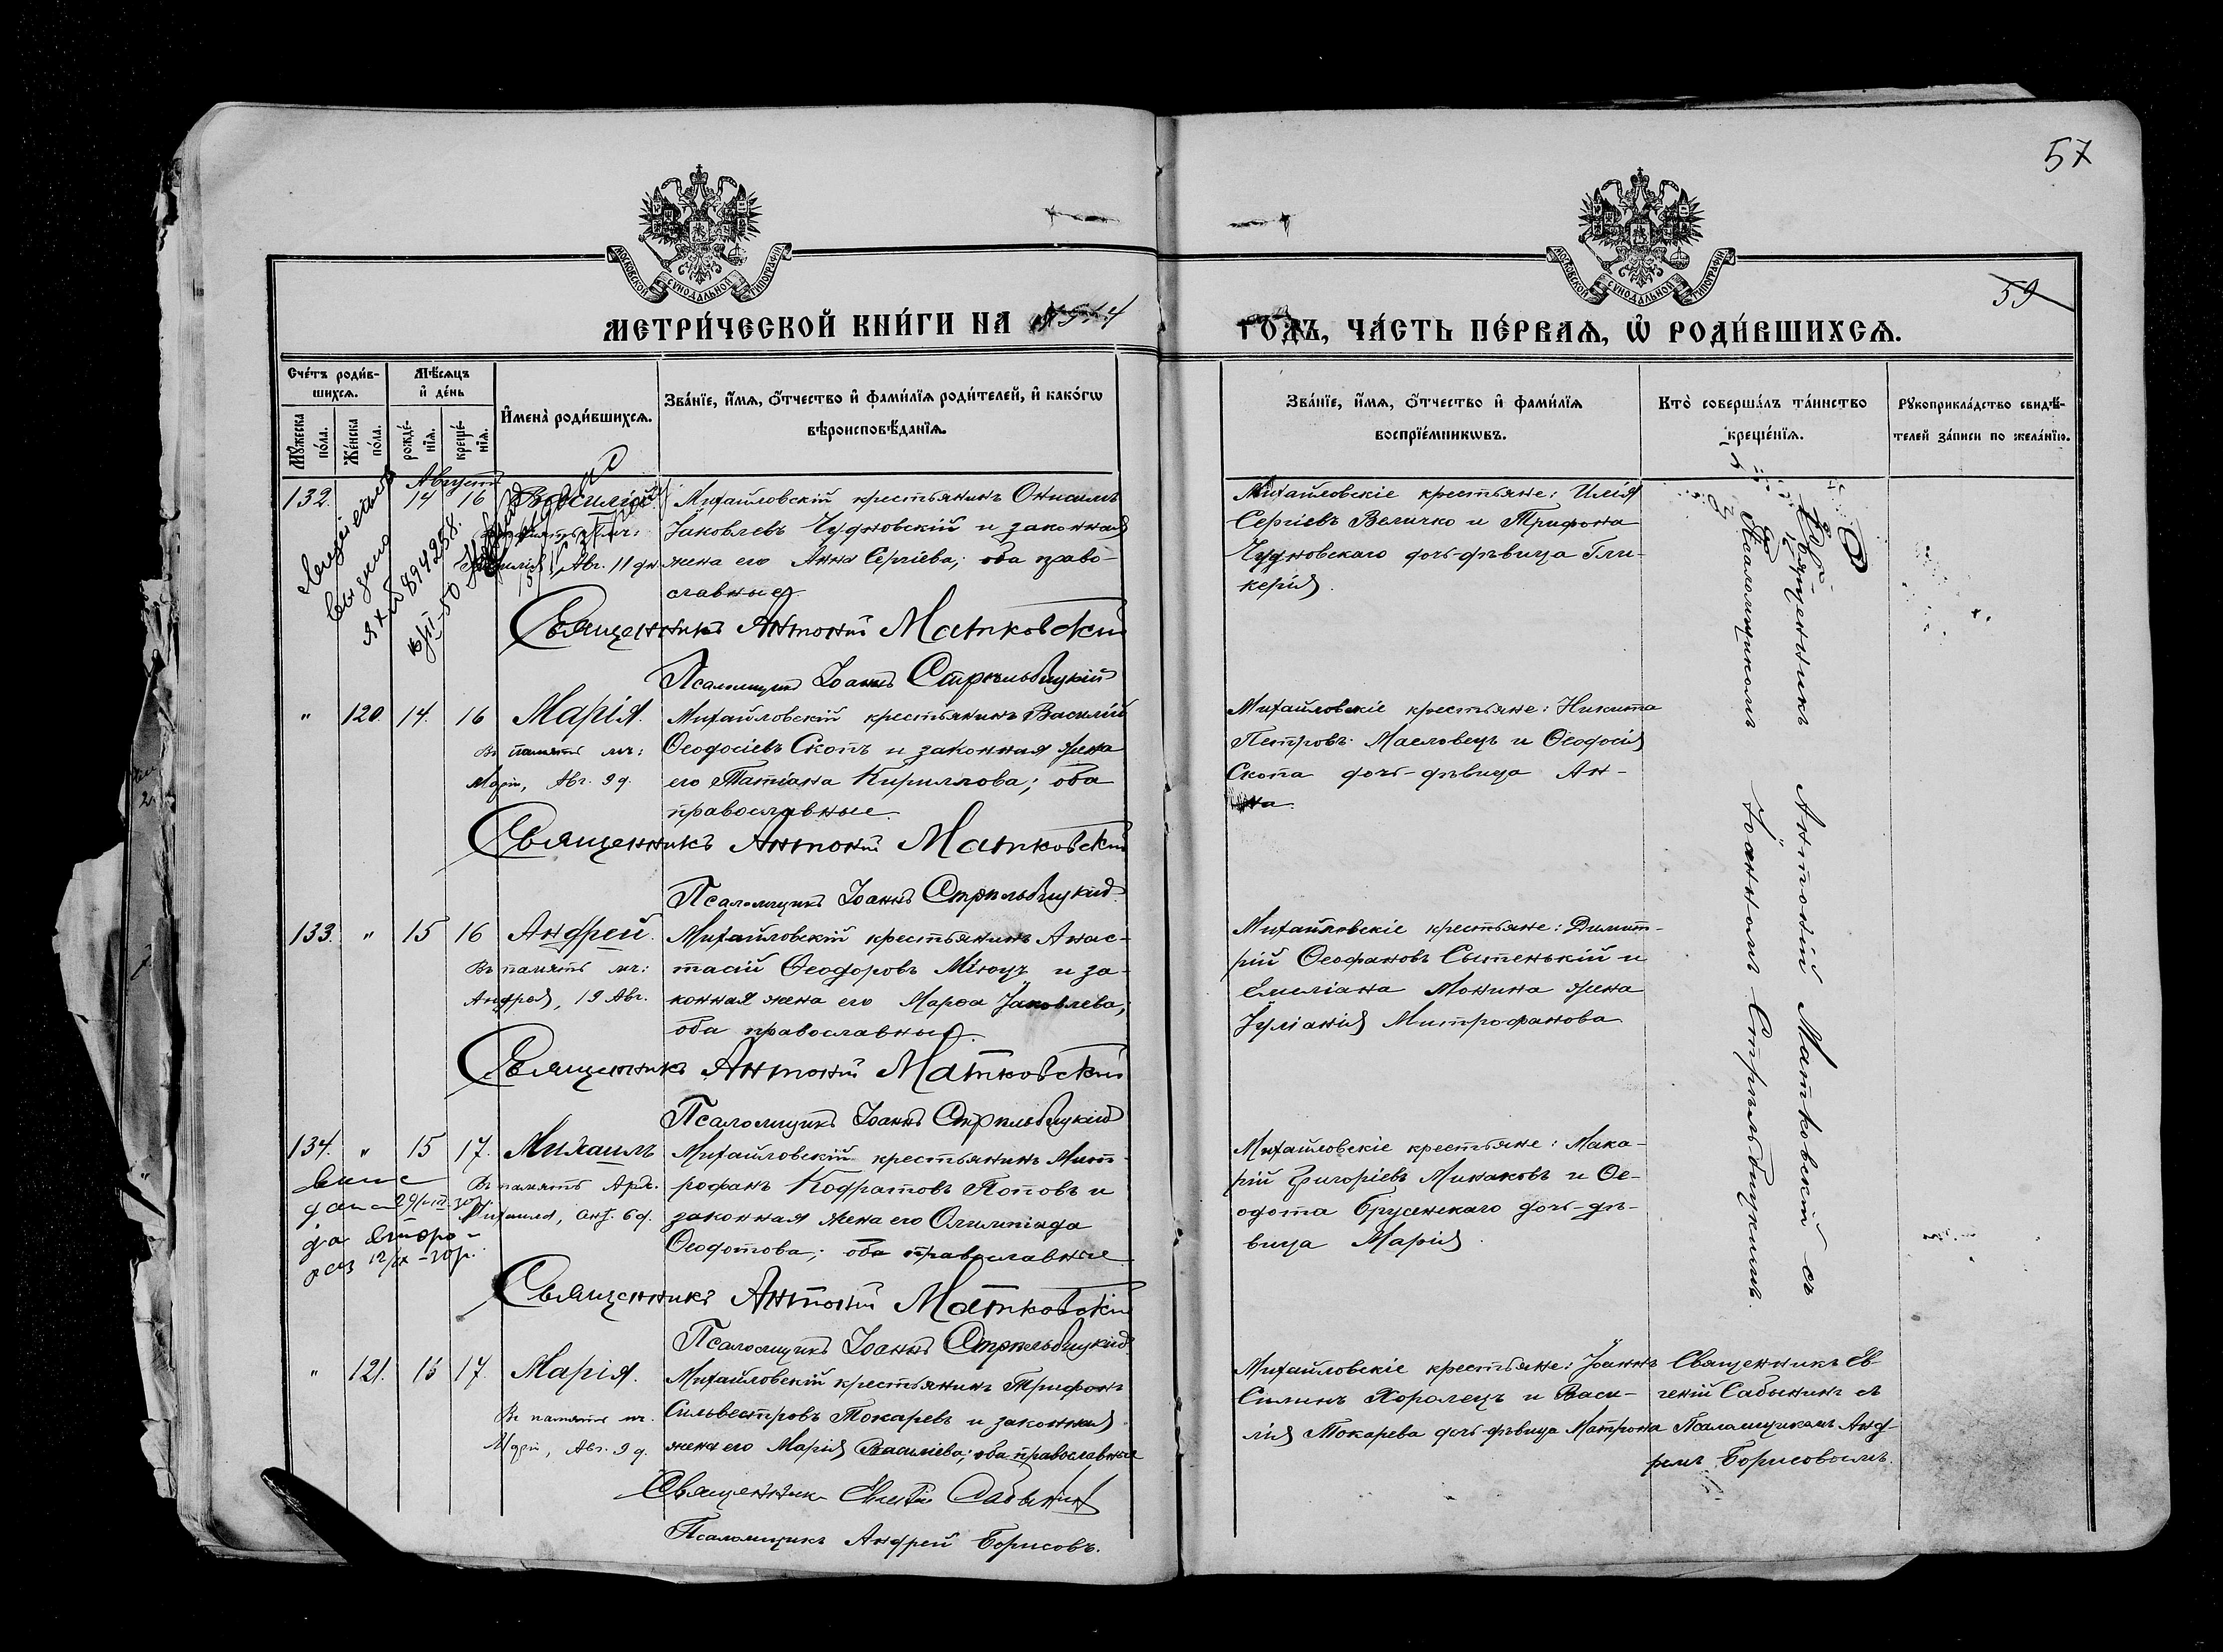 57
59
МОСКОВСКОЙ СѴНОДАЛЬНОЙ ТИПОГРАФІИ
МОСКОВСКОЙ СѴНОДАЛЬНОЙ ТИПОГРАФІИ
МЕТРИ́ЧЕСКОЙ КНИ́ГИ НА 1914
ГОДЪ, ЧА́СТЬ ПЕ́РВАѦ, Ѡ РОДИ́ВШИХСѦ.
Сче́тъ роди́в-
шихсѧ.
Мѣ́сѧцъ
и҆ де́нь
Мꙋ́жеска по́ла.
Же́нска по́ла.
рожде́-
нїѧ.
креще́-
нїѧ.
И҆мена̀ роди́вшихсѧ.
Зва́нїе, и҆́мѧ, ѻ҆́тчество и҆ фами́лїѧ роди́телей, и҆ како́гѡ
вѣроисповѣ́данїѧ.
Зва́нїе, и҆́мѧ, ѻ҆́тчество и҆ фами́лїѧ
воспрїе́мникѡвъ.
Кто̀ соверша́лъ та́инство
креще́нїѧ.
Рꙋкоприкла́дство свидѣ́-
телей за́писи по жела́нїю.
Августъ
132. 14 16 Василій
Авг. 11 дн
Михайловскій крестьянинъ Онисимъ
Іаковлевъ Чудновскій и законная
жена его Анна Сергіева; оба право-
славные.
Священникъ Антоній Матковскій
Псаломщикъ Іоаннъ Стрѣльбицкій
Михайловскіе крестьяне: Илія
Сергіевъ Величко и Трифона
Чудновскаго дочь-дѣвица Гли-
керія.
Свидѣтельство
выдано
ЯХЮ 894258.
" 120. 14. 16 Марія.
Въ память мч:
Маріи, Авг. 9 д.
Михайловскій крестьянинъ Василій
Ѳеодосіевъ Скопъ и законная жена
его Татіана Кириллова; оба
православные.
Священникъ Антоній Матковскій
Псаломщикъ Іоаннъ Стрѣльбицкій
Михайловскіе крестьяне: Никита
Петровъ Масловецъ и Ѳеодосія
Скопа дочь-дѣвица Ан-
на.
133. " 15 16 Андрей.
Въ память мч:
Андрея, 19 Авг.
Михайловскій крестьянинъ Анас-
тасій Ѳеодоровъ Міюцъ и за-
конная жена его Марѳа Іаковлева;
оба православные.
Священникъ Антоній Матковскій
Псаломщикъ Іоаннъ Стрѣльбицкій
Михайловскіе крестьяне: Димит-
рій Ѳеофановъ Сытенькій и
Емеліана Монина жена
Іуліанія Митрофанова
134. " 15 17. Михаилъ
Въ память Арх.
Михаила, 6 д.
Михайловскій крестьянинъ Мит-
рофанъ Кодратовъ Поповъ и
законная жена его Олимпіада
Ѳеодотова; оба православные
Священникъ Антоній Матковскій
Псаломщикъ Іоаннъ Стрѣльбицкій
Михайловскіе крестьяне: Мака-
рій Григоріевъ Минаковъ и Ѳе-
одота Брусенскаго дочь-дѣ-
вица Марія.
Священникъ Антоній Матковскій съ
Псаломщикомъ Іоанномъ Стрѣльбицкимъ.
" 121. 15 17. Марія.
Въ память мч.
Маріи, Авг. 9 д.
Михайловскій крестьянинъ Трифонъ
Сильвестровъ Токаревъ и законная
жена его Марія Василіева; оба православные
Священникъ Евгеній Сабынинъ
Псаломщикъ Андрей Борисовъ.
Михайловскіе крестьяне: Іоаннъ
Силинъ Хоролецъ и Васи-
лія Токарева дочь-дѣвица Матрона
Священникъ Ев-
геній Сабынинъ съ
Псаломщикомъ Анд-
реемъ Борисовымъ.